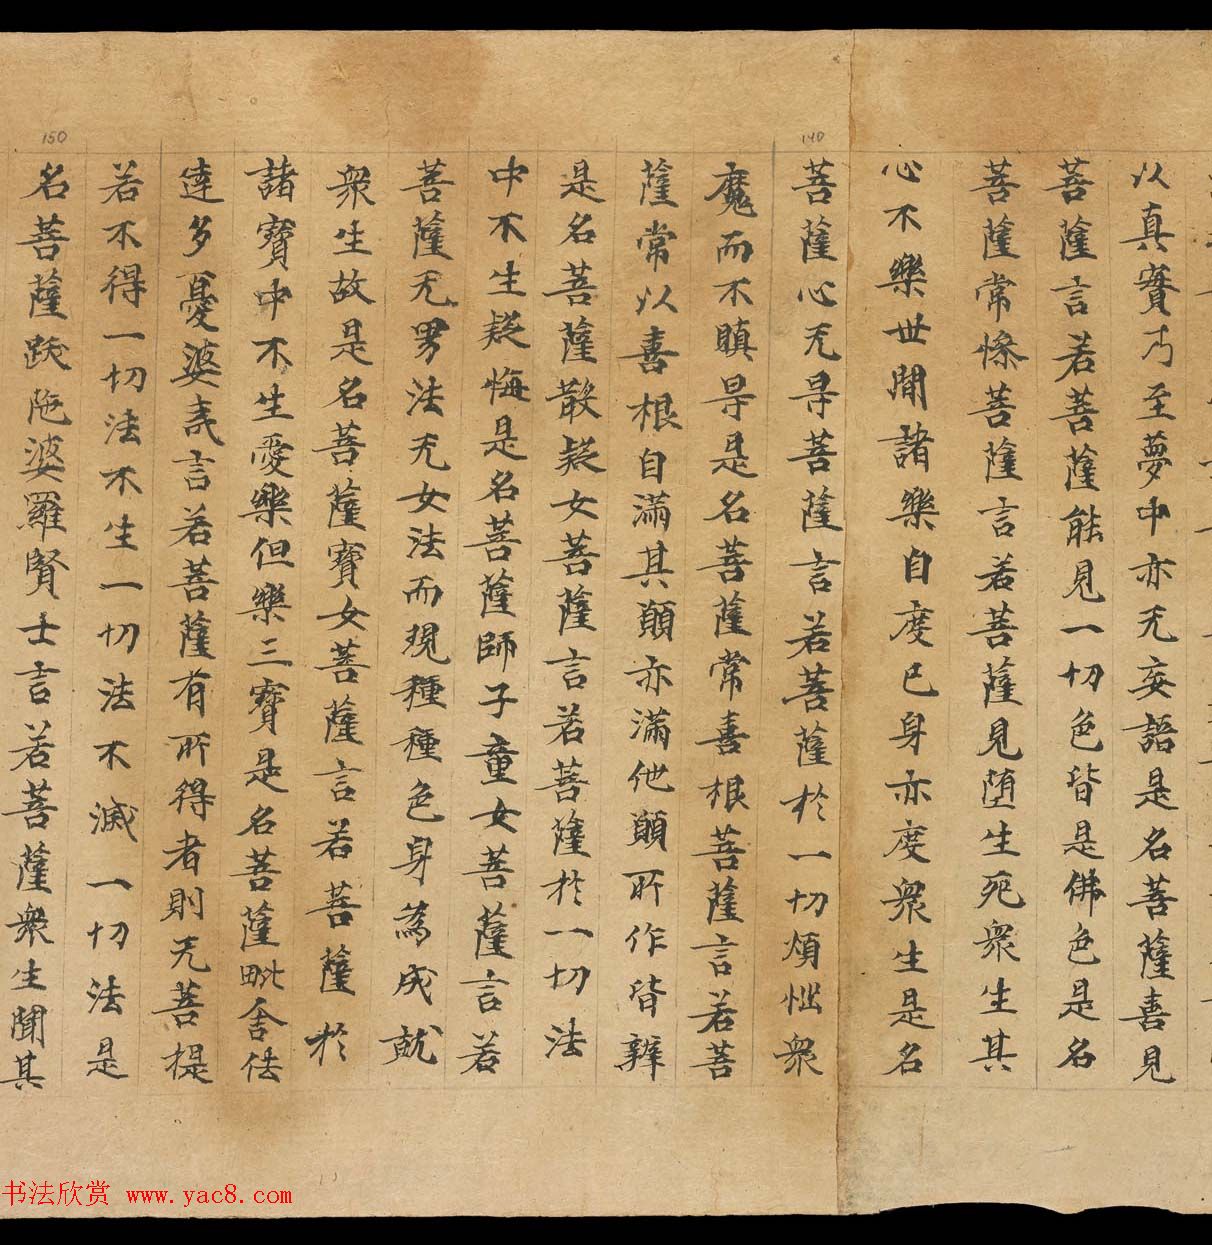 以真實乃至夢中亦无妄語是名菩薩喜見
菩薩言若菩薩能見一切色皆是佛色是名
菩薩常慘菩薩言若菩薩見堕生死衆生其
心不樂世間諸樂自度己身亦度衆生是名
菩薩心无㝵菩薩言若菩薩於一切煩惱衆
魔而不瞋㝵是名菩薩常喜根菩薩言若菩
薩常以喜根自滿其願亦滿他願所作皆辦
是名菩薩散疑女菩薩言若菩薩於一切法
中不生疑悔是名菩薩師子童女菩薩言若
菩薩无男法无女法而現種種色身為成就
衆生故是名菩薩寶女菩薩言若菩薩於
諸寶中不生愛樂但樂三寶是名菩薩毗舍佉
達多憂婆夷言若菩薩有所得者則无菩提
若不得一切法不生一切法不滅一切法是
名菩薩跋陁婆羅賢士言若菩薩衆生聞其
140
150
书法欣赏 www.yac8.com